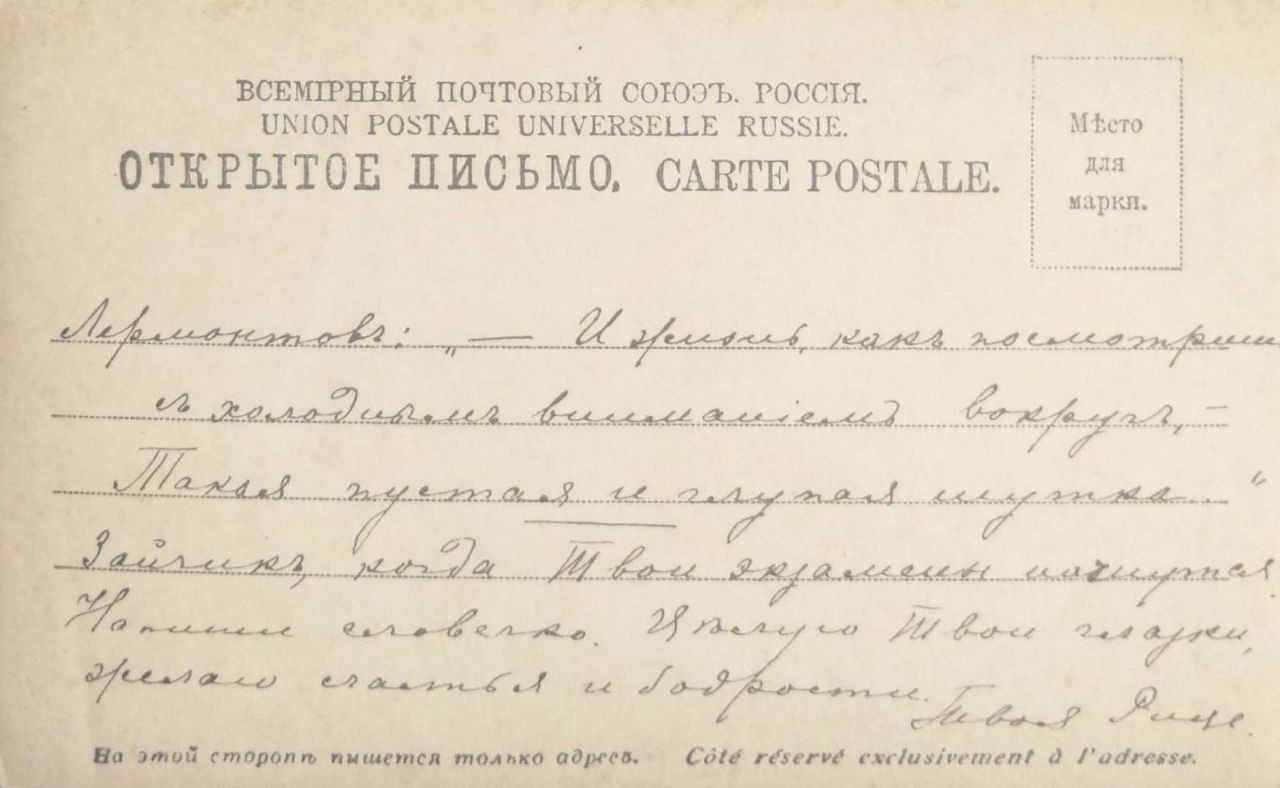 ВСЕМІРНЫЙ ПОЧТОВЫЙ СОЮЗЪ. РОССІЯ.
UNION POSTALE UNIVERSELLE RUSSIE.
ОТКРЫТОЕ ПИСЬМО. CARTE POSTALE.
Мѣсто
для
марки.
Лермонтовъ: „— И жизнь, какъ посмотришь
съ холоднымъ вниманіемъ вокругъ, –
Такая пустая и глупая шутка.."
Зайчикъ, когда Твои экзамены начнутся.
Напиши словечко. Цѣлую Твои глазки,
желаю счастья и бодрости.
Твоя
На этой сторонѣ пишется только адресъ. Côté réservé exclusivement à l'adresse.